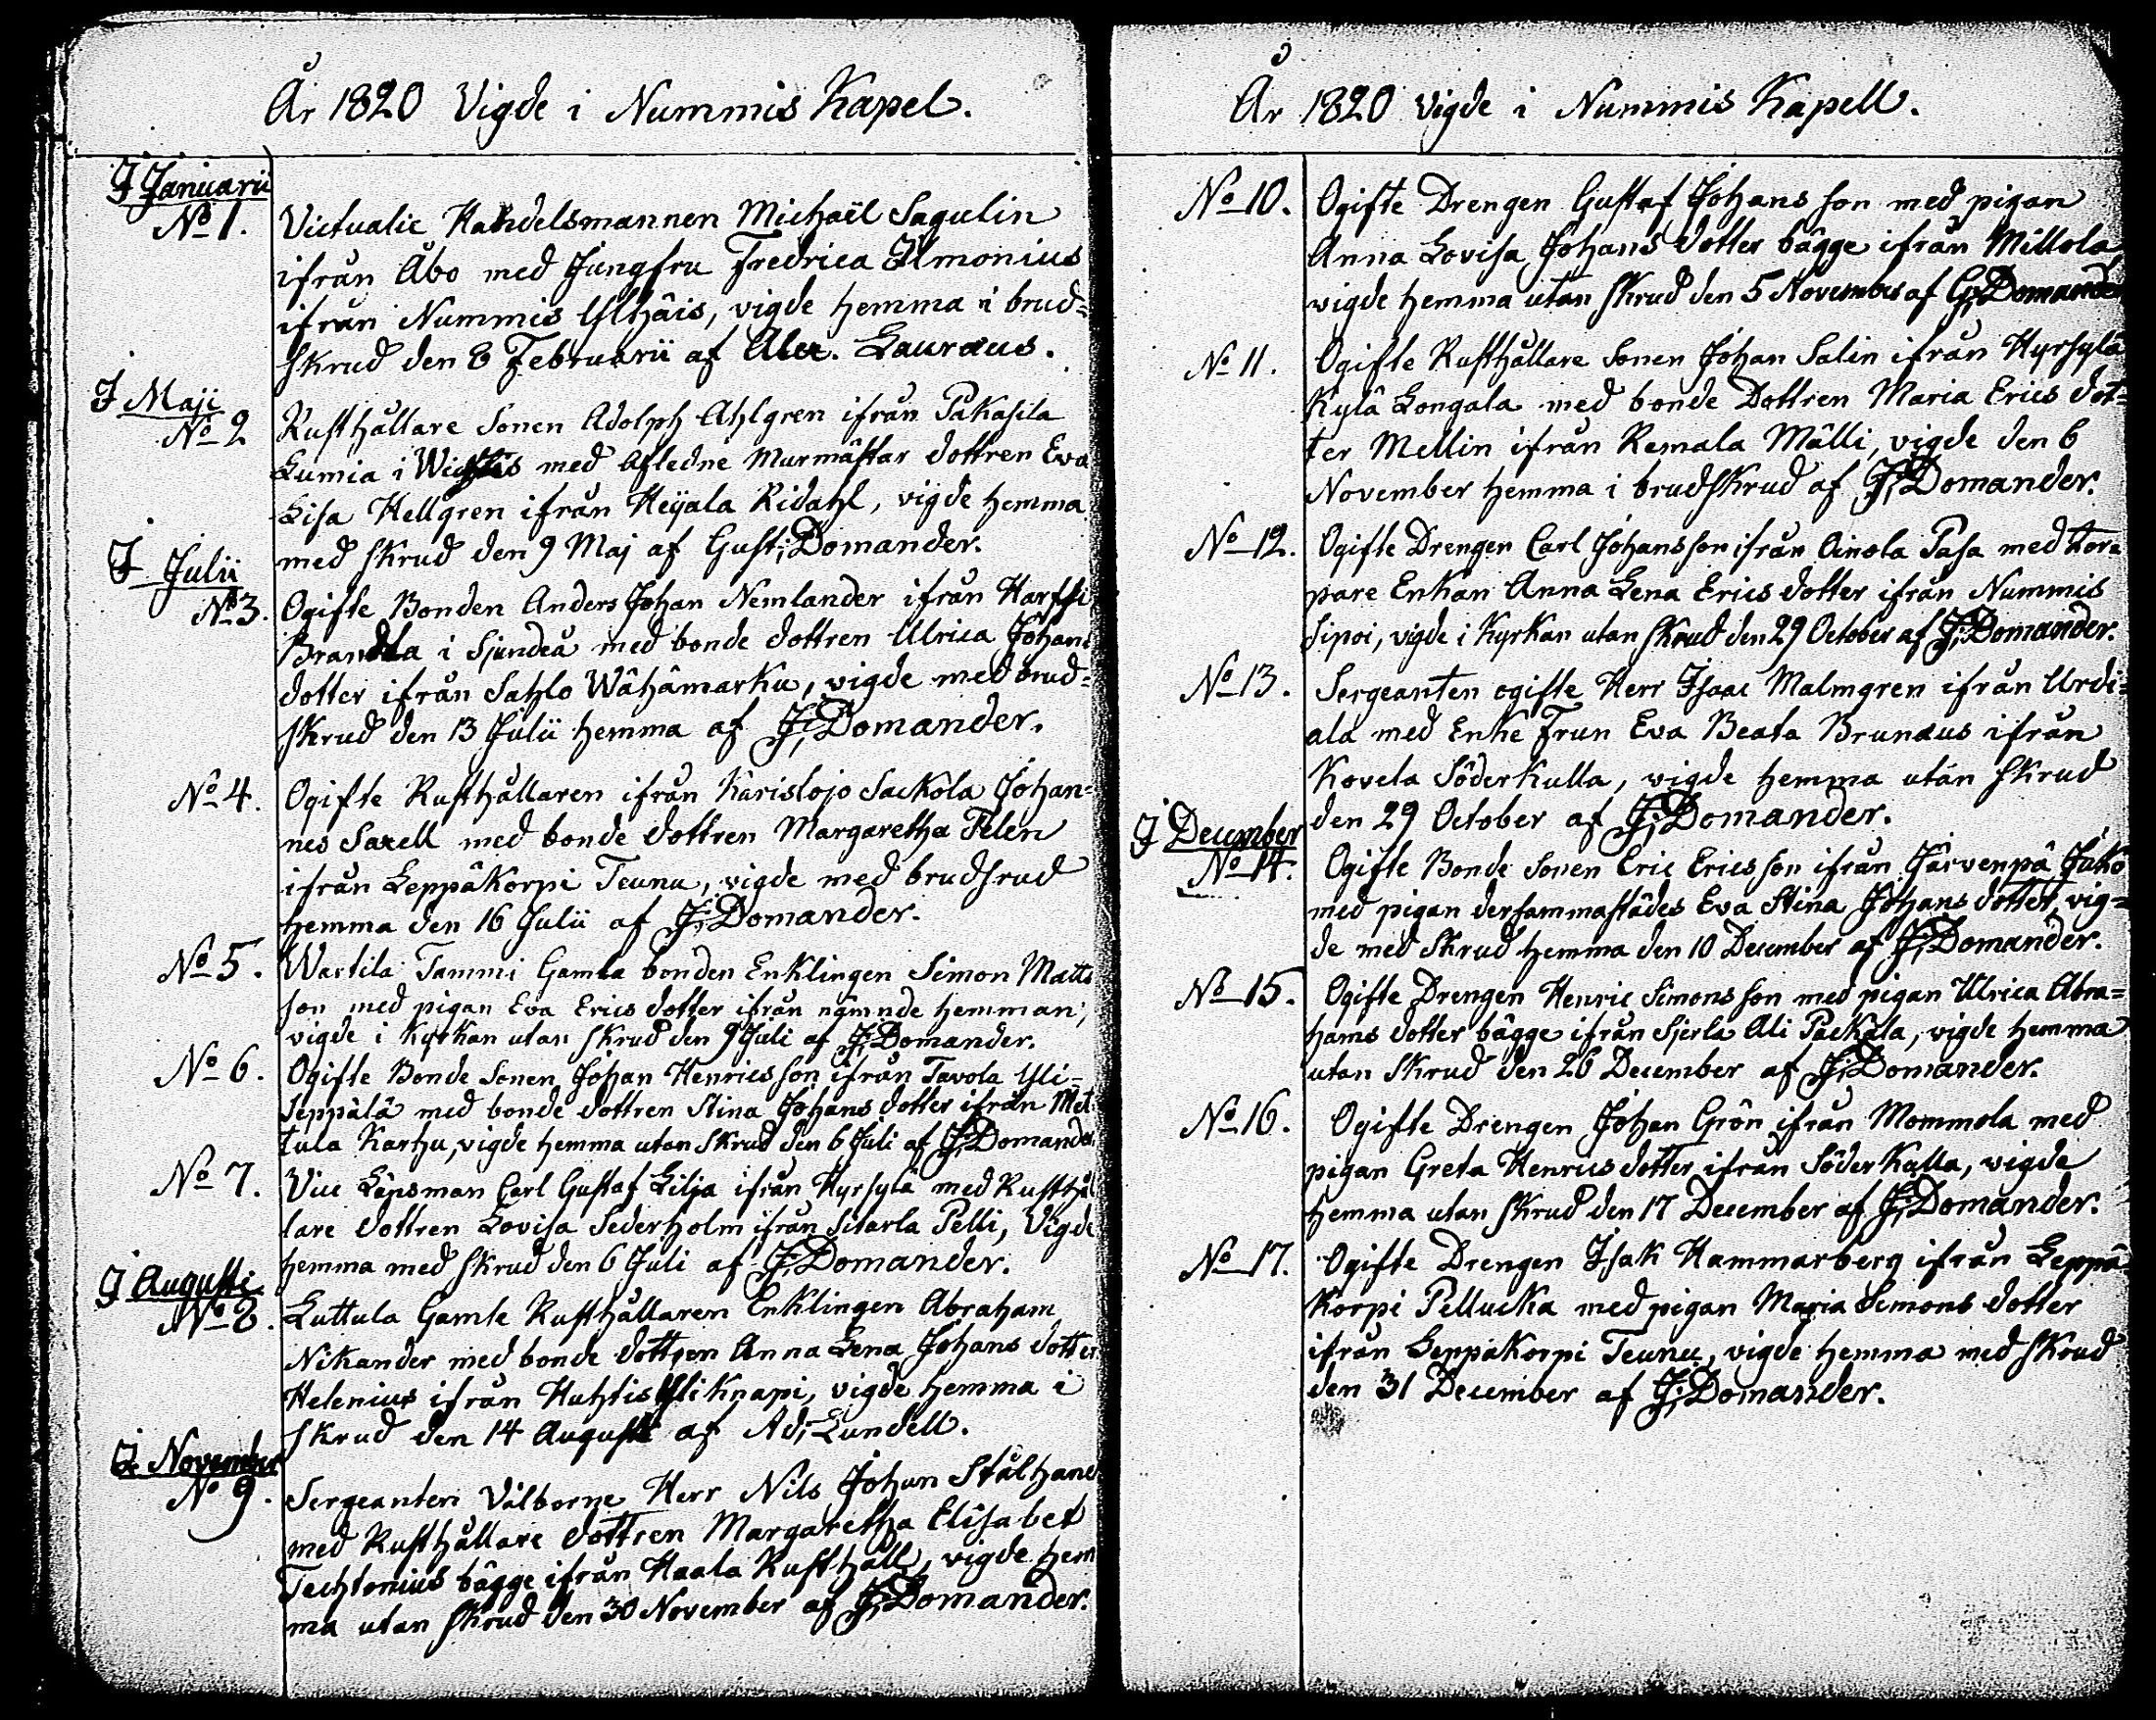 År 1820 Vigde i Nummis Kapel.
I Januarii
No 1. Victualie Handelsmannen Michaël Sagulin
ifrån Åbo med Jungfru Fredrica Ilmonius
ifrån Nummis Ylhäis, vigde hemma i brud=
skrud den 8 Februarii af Alex. Lauræus.
I Maji
No 2 Rusthållare Sonen Adolph Ahlgren ifrån Pakasila
Lumia i Wichtis med Afledne Murmästar dottren Eva
Lisa Hellgren ifrån Heijala Ridahl, vigde hemma
med skrud den 9 Maj af Gust; Domander.
I Julii
No 3. Ogifte Bonden Anders Johan Nemlander ifrån Harfsi
Brandla i Sjundeå med bonde dottren Ulrica Johans
dotter ifrån Sahlo Wähämarku, vigde med brud=
skrud den 13 Julii hemma af G; Domander.
No 4. Ogifte Rusthållaren ifrån Karislojo Sackola Johan=
nes Saxell med bonde dottren Margaretha Pelen
ifrån Leppäkorpi Teunu, vigde med brudsrud
hemma den 16 Julii af G; Domander.
No 5. Wartila Tammi Gamla bonden Enklingen Simon Matts
son med pigan Eva Erics dotter ifrån nämnde hemman;
vigde i Kyrkan utan skrud den 9 Juli af G; Domander.
No 6. Ogifte Bonde Sonen Johan Henrics son ifrån Tavola Yli=
Seppälä med bonde dottren Stina Johans dotter ifrån Met
tula Karhu, vigde hemma utan skrud den 6 Juli af G; Domander
No 7. Vice Länsman Carl Gustaf Lilja ifrån Hyrsylä med Rusthål
lare dottren Lovisa Sederholm ifrån Sitarla Pelli, Vigde
hemma med skrud den 6 Juli af G; Domander.
I Augusti
No 8. Luttula Gamle Rusthållaren Enklingen Abraham
Nikander med bonde dottren Anna Lena Johans dotter
Helenius ifrån Huhtis Yli Knapi, vigde hemma i
skrud den 14 Augusti af Ad; Lundell.
I November
No 9. Sergeanten Välborne Herr Nils Johan Stålhane
med Rusthållare dottren Margaretha Elisabet
Techtonius bägge ifrån Haala Rusthåll, vigde hem
ma utan skrud den 30 November af G; Domander.
År 1820 vigde i Nummis Kapell.
No 10. Ogifte Drengen Gustaf Johans son med pigan
Anna Lovisa Johans dotter bägge ifrån Millola
vigde hemma utan skrud den 5 November af G; Domander
No 11. Ogifte Rusthållare Sonen Johan Salin ifrån Hyrsylä
Kylä Longala med bonde Dottren Maria Erics dot=
ter Mellin ifrån Remala Mälli, vigde den 6
November hemma i brudskrud af G; Domander.
No 12. Ogifte Drengen Carl Johansson ifrån Oinola Pasa med tor=
pare Enkan Anna Lena Erics dotter ifrån Nummis
Sipoi, vigde i Kyrkan utan skrud den 29 October af G; Domander.
No 13. Sergeanten ogifte Herr Isaac Malmgren ifrån Urdi=
ala med Enke Frun Eva Beata Brunæus ifrån
Kovela Söderkulla, vigde hemma utan skrud
den 29 October af G; Domander.
I December
No 14. Ogifte Bonde Sonen Eric Ericsson ifrån Järvenpä Juko
med pigan dersammastädes Eva Stina Johans dotter, vig=
de med skrud hemma den 10 December af G; Domander.
No 15. Ogifte Drengen Henric Simons son med pigan Ulrica Abra=
hams dotter bägge ifrån Sjerla Ali Packala, vigde hemma
utan skrud den 26 December af G; Domander.
No 16. Ogifte Drengen Johan Grön ifrån Mommola med
pigan Greta Henrics dotter ifrån Söderkulla, vigde
hemma utan skrud den 17 December af G; Domander.
No 17. Ogifte Drengen Isak Hammarberg ifrån Leppä
korpi Pellucka med pigan Maria Simons dotter
ifrån Leppäkorpi Teunu, vigde hemma med skrud
den 31 December af G; Domander.